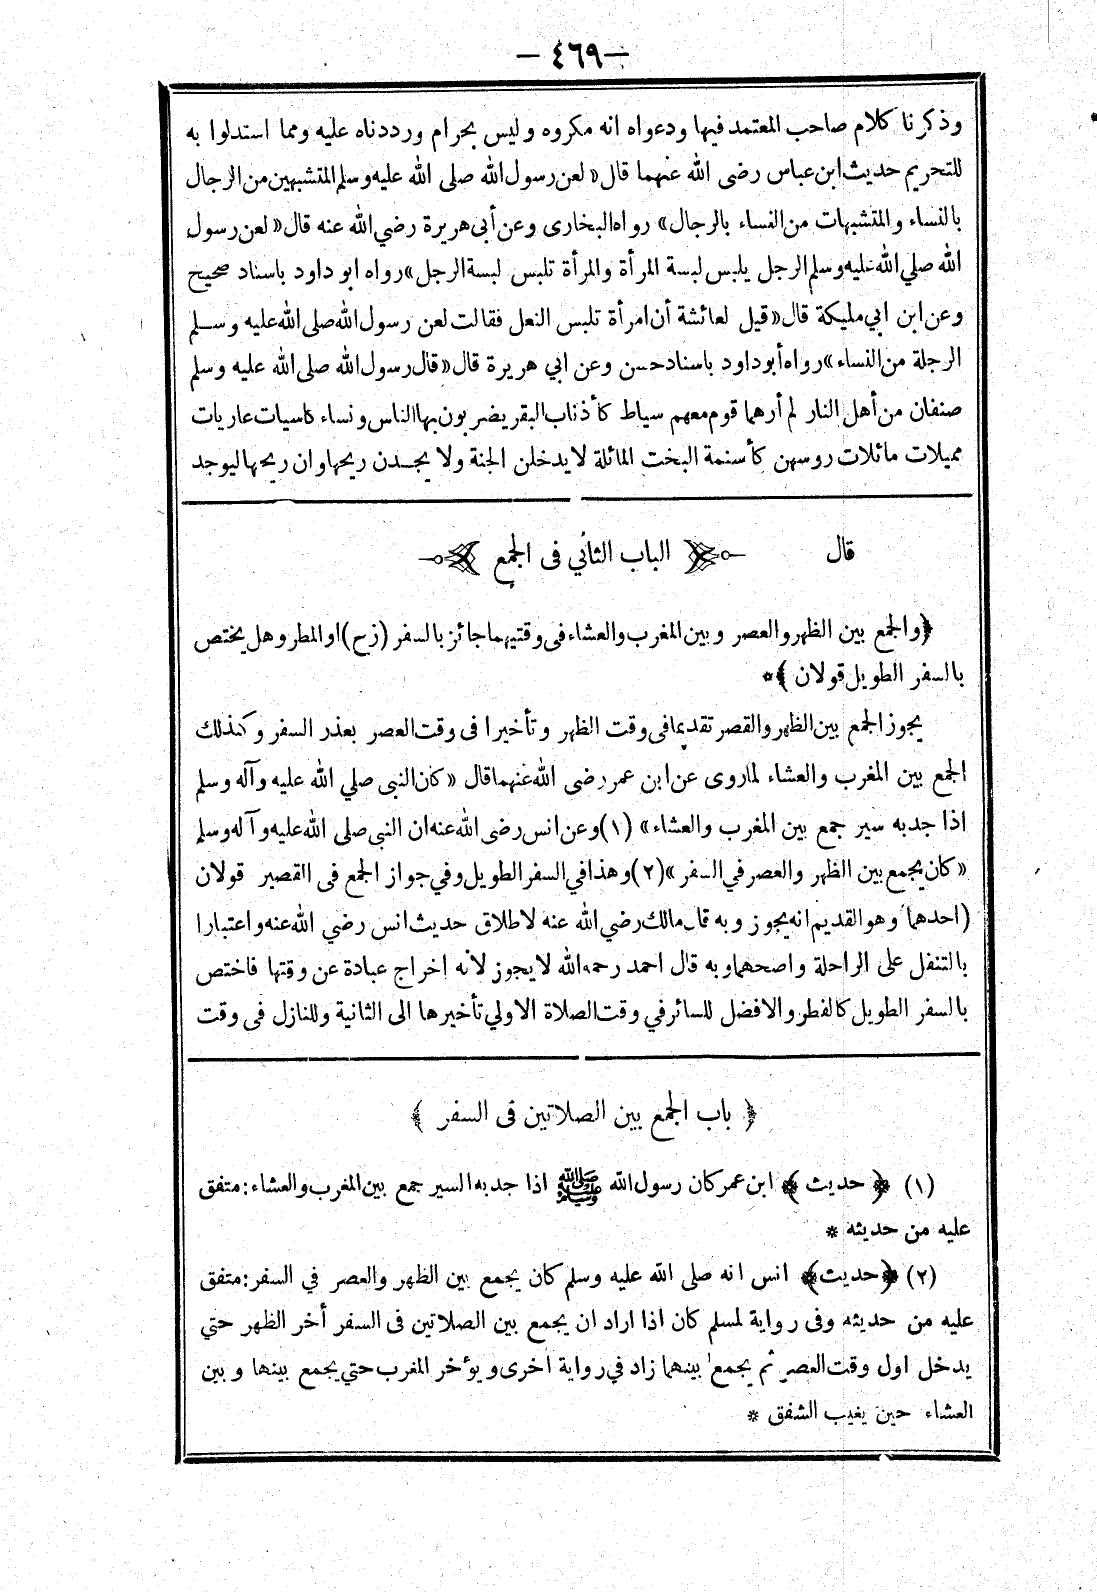 — ٤٦٩ —
وذكرنا كلام صاحب المعتمد فيها ودعواه انه مكروه وليس بحرام ورددناه عليه ومما استدلوا به
للتحريم حديث ابن عباس رضى الله عنهما قال « لعن رسول الله صلى الله عليه وسلم المتشبهين من الرجال
بالنساء والمتشبهات من النساء بالرجال » رواه البخارى وعن أبى هريرة رضي الله عنه قال « لعن رسول
الله صلي الله عليه وسلم الرجل يلبس لبسة المرأة والمرأة تلبس لبسة الرجل » رواه ابو داود باسناد صحيح
وعن ابن ابي مليكة قال « قيل لعائشة أن امرأة تلبس النعل فقالت لعن رسول الله صلى الله عليه وسلم
الرجلة من النساء » رواه أبو داود باسناد حسن وعن ابي هريرة قال « قال رسول الله صلى الله عليه وسلم
صنفان من أهل النار لم أرهما قوم معهم سياط كأذناب البقر يضربون بها الناس ونساء كاسيات عاريات
مميلات مائلات روسهن كأسنمة البخت المائلة لا يدخلن الجنة ولا يجدن ريحها وان ريحها ليوجد
قال ﴿ الباب الثاني فى الجمع ﴾
﴿ والجمع بين الظهر والعصر وبين المغرب والعشاء فى وقتيهما جائز بالسفر (زح) او المطر وهل يختص
بالسفر الطويل قولان ﴾ *
يجوز الجمع بين الظهر والقصر تقديما فى وقت الظهر وتأخيرا فى وقت العصر بعذر السفر وكذلك
الجمع بين المغرب والعشاء لما روى عن ابن عمر رضى الله عنهما قال « كان النبى صلي الله عليه وآله وسلم
اذا جد به سير جمع بين المغرب والعشاء » (١) وعن انس رضى الله عنه ان النبي صلى الله عليه وآله وسلم
« كان يجمع بين الظهر والعصر في السفر » (٢) وهذا في السفر الطويل وفي جواز الجمع فى القصير قولان
(احدهما) وهو القديم انه يجوز وبه قال مالك رضي الله عنه لاطلاق حديث انس رضي الله عنه واعتبارا
بالتنفل على الراحلة واصحهما وبه قال احمد رحمه الله لا يجوز لانه اخراج عبادة عن وقتها فاختص
بالسفر الطويل كالفطر والافضل للسائر في وقت الصلاة الاولي تأخيرها الى الثانية وللنازل فى وقت
﴿ باب الجمع بين الصلاتين فى السفر ﴾
(١) ﴿ حديث ﴾ ابن عمر كان رسول الله ﷺ اذا جد به السير جمع بين المغرب والعشاء : متفق
عليه من حديثه *
(٢) ﴿ حديث ﴾ انس انه صلى الله عليه وسلم كان يجمع بين الظهر والعصر في السفر : متفق
عليه من حديثه وفى رواية لمسلم كان اذا اراد ان يجمع بين الصلاتين فى السفر أخر الظهر حتي
يدخل اول وقت العصر ثم يجمع بينهما زاد في رواية اخرى ويؤخر المغرب حتي يجمع بينها وبين
العشاء حين يغيب الشفق *